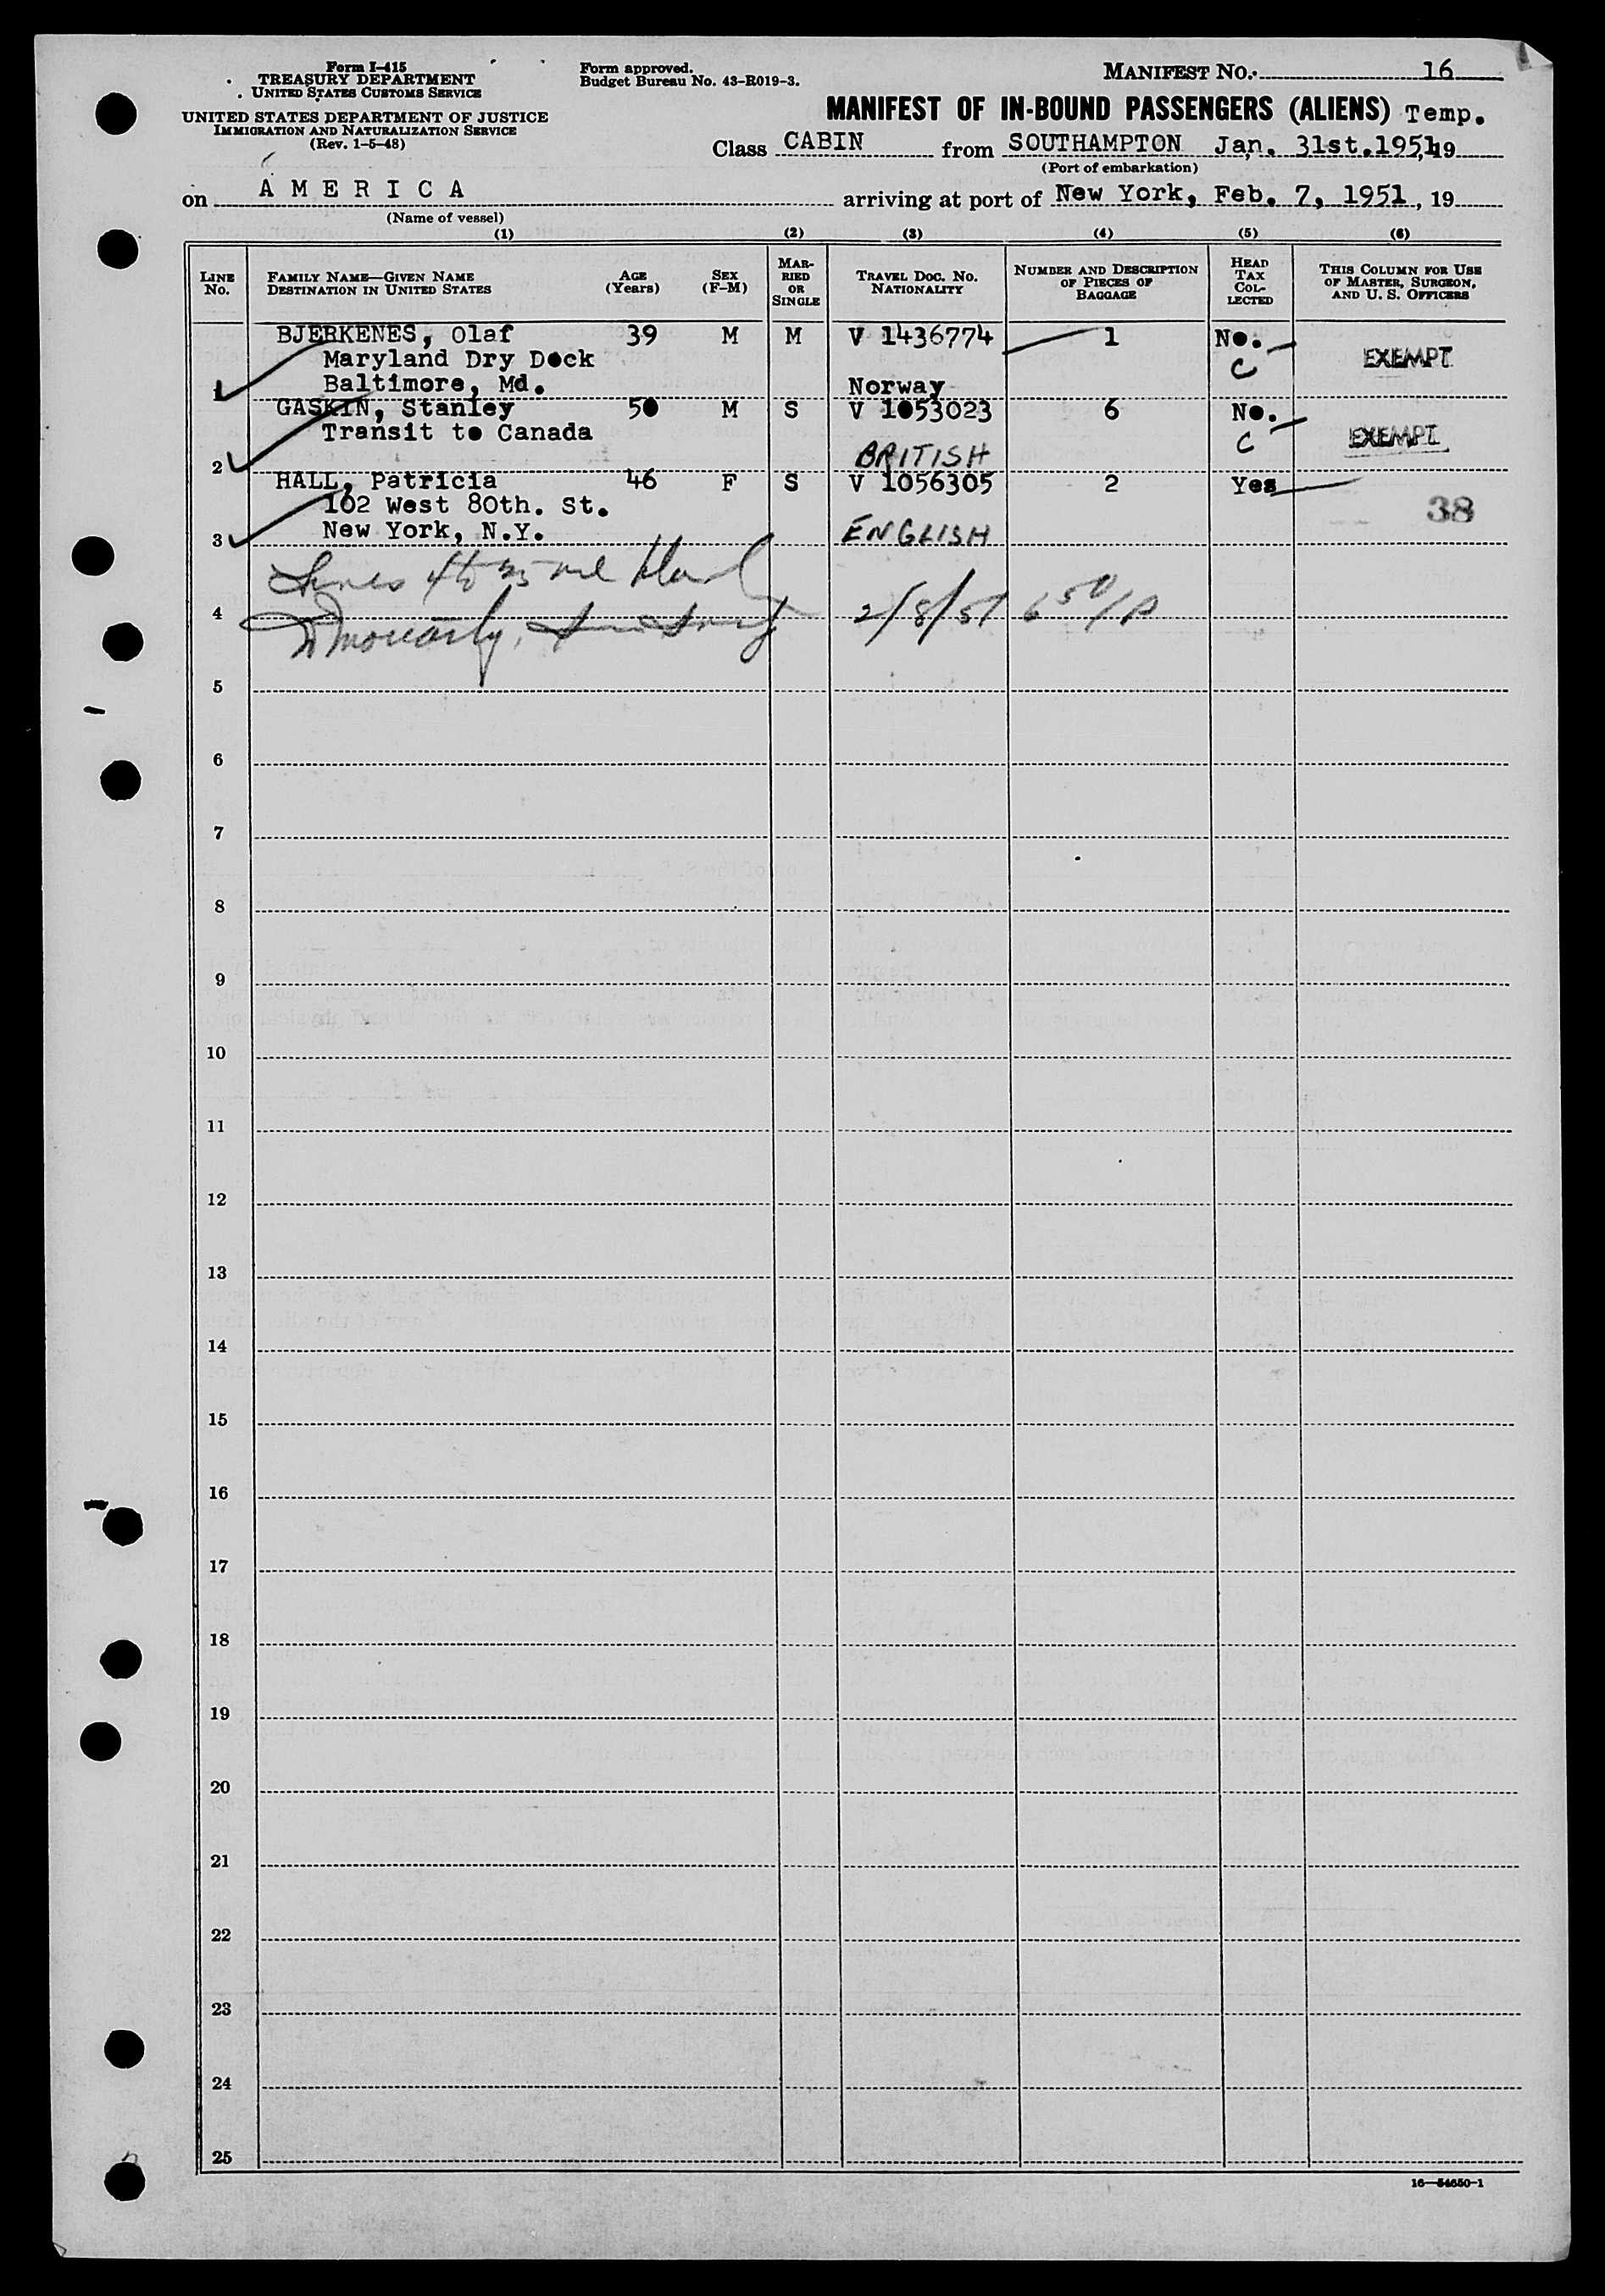 Form I-415
TREASURY DEPARTMENT
UNITED STATES CUSTOMS SERVICE
UNITED STATES DEPARTMENT OF JUSTICE
IMMIGRATION AND NATURALIZATION SERVICE
(Rev. 1-5-48)
Form approved.
Budget Bureau No. 43-R019-3.
MANIFEST NO. 16
MANIFEST OF IN-BOUND PASSENGERS (ALIENS) Temp.
Class CABIN from SOUTHAMPTON Jan. 31st.1951, 19
(Port of embarkation)
on AMERICA arriving at port of New York, Feb. 7, 1951, 19
(Name of vessel)
(1) (2) (3) (4) (5) (6)
LINE NO. FAMILY NAME—GIVEN NAME DESTINATION IN UNITED STATES AGE (Years) SEX (F-M) MARRIED OR SINGLE TRAVEL DOC. NO. NATIONALITY NUMBER AND DESCRIPTION OF PIECES OF BAGGAGE HEAD TAX COLLECTED THIS COLUMN FOR USE OF MASTER, SURGEON, AND U. S. OFFICERS
BJERKENES, Olaf 39 M M V 1436774 1 No.
Maryland Dry Dock C EXEMPT
1 Baltimore, Md. Norway
GASKIN, Stanley 50 M S V 1053023 6 No.
Transit to Canada C EXEMPT
2 BRITISH
HALL, Patricia 46 F S V 1056305 2 Yes
102 West 80th. St. 38
3 New York, N.Y. ENGLISH
Lines 4 to 25
4 2/8/51 6 50/
5
6
7
8
9
10
11
12
13
14
15
16
17
18
19
20
21
22
23
24
25
16—54650-1